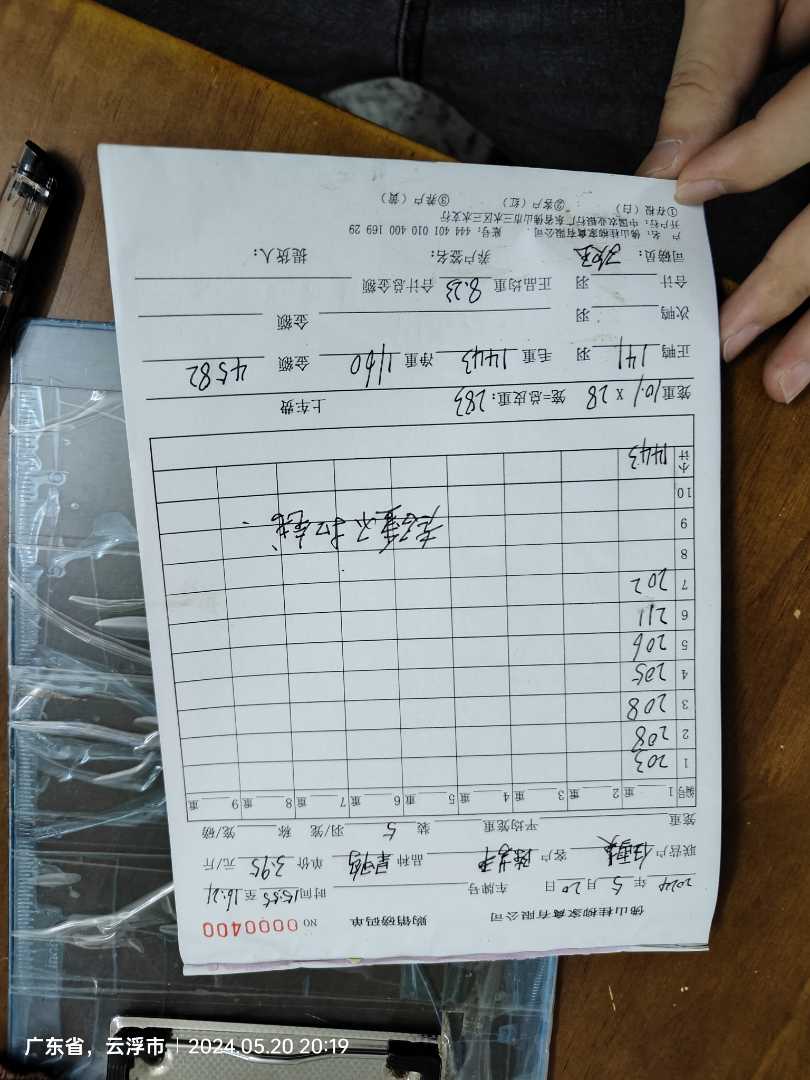 佛山桂柳家禽有限公司 购销磅码单 NO 0000400
2024年5月20日 车牌号 时间15:55至16:21
联营户 客户 品种 单价3.95元/斤
笼重 平均笼重 装5羽/笼 称 笼/磅
编号 1 重 2 重 3 重 4 重 5 重 6 重 7 重 8 重 9 重
1 203
2 208
3 208
4 205
5 206
6 211
7 202
8
9
10
小计 1443
笼重10.1 X 28 笼=总皮重:283 上车费
正鸭141羽 毛重1443 净重1160 金额4582
次鸭 羽 金额
合计 羽 正品均重8.23 合计总金额
司磅员: 养户签名: 提货人:
户 名:佛山桂柳家禽有限公司. 账号:444 401 010 400 169 29
开户行:中国农业银行广东省佛山市三水区三水支行
①存根(白) ②客户(红) ③养户(黄)
广东省，云浮市 2024.05.20 20:19